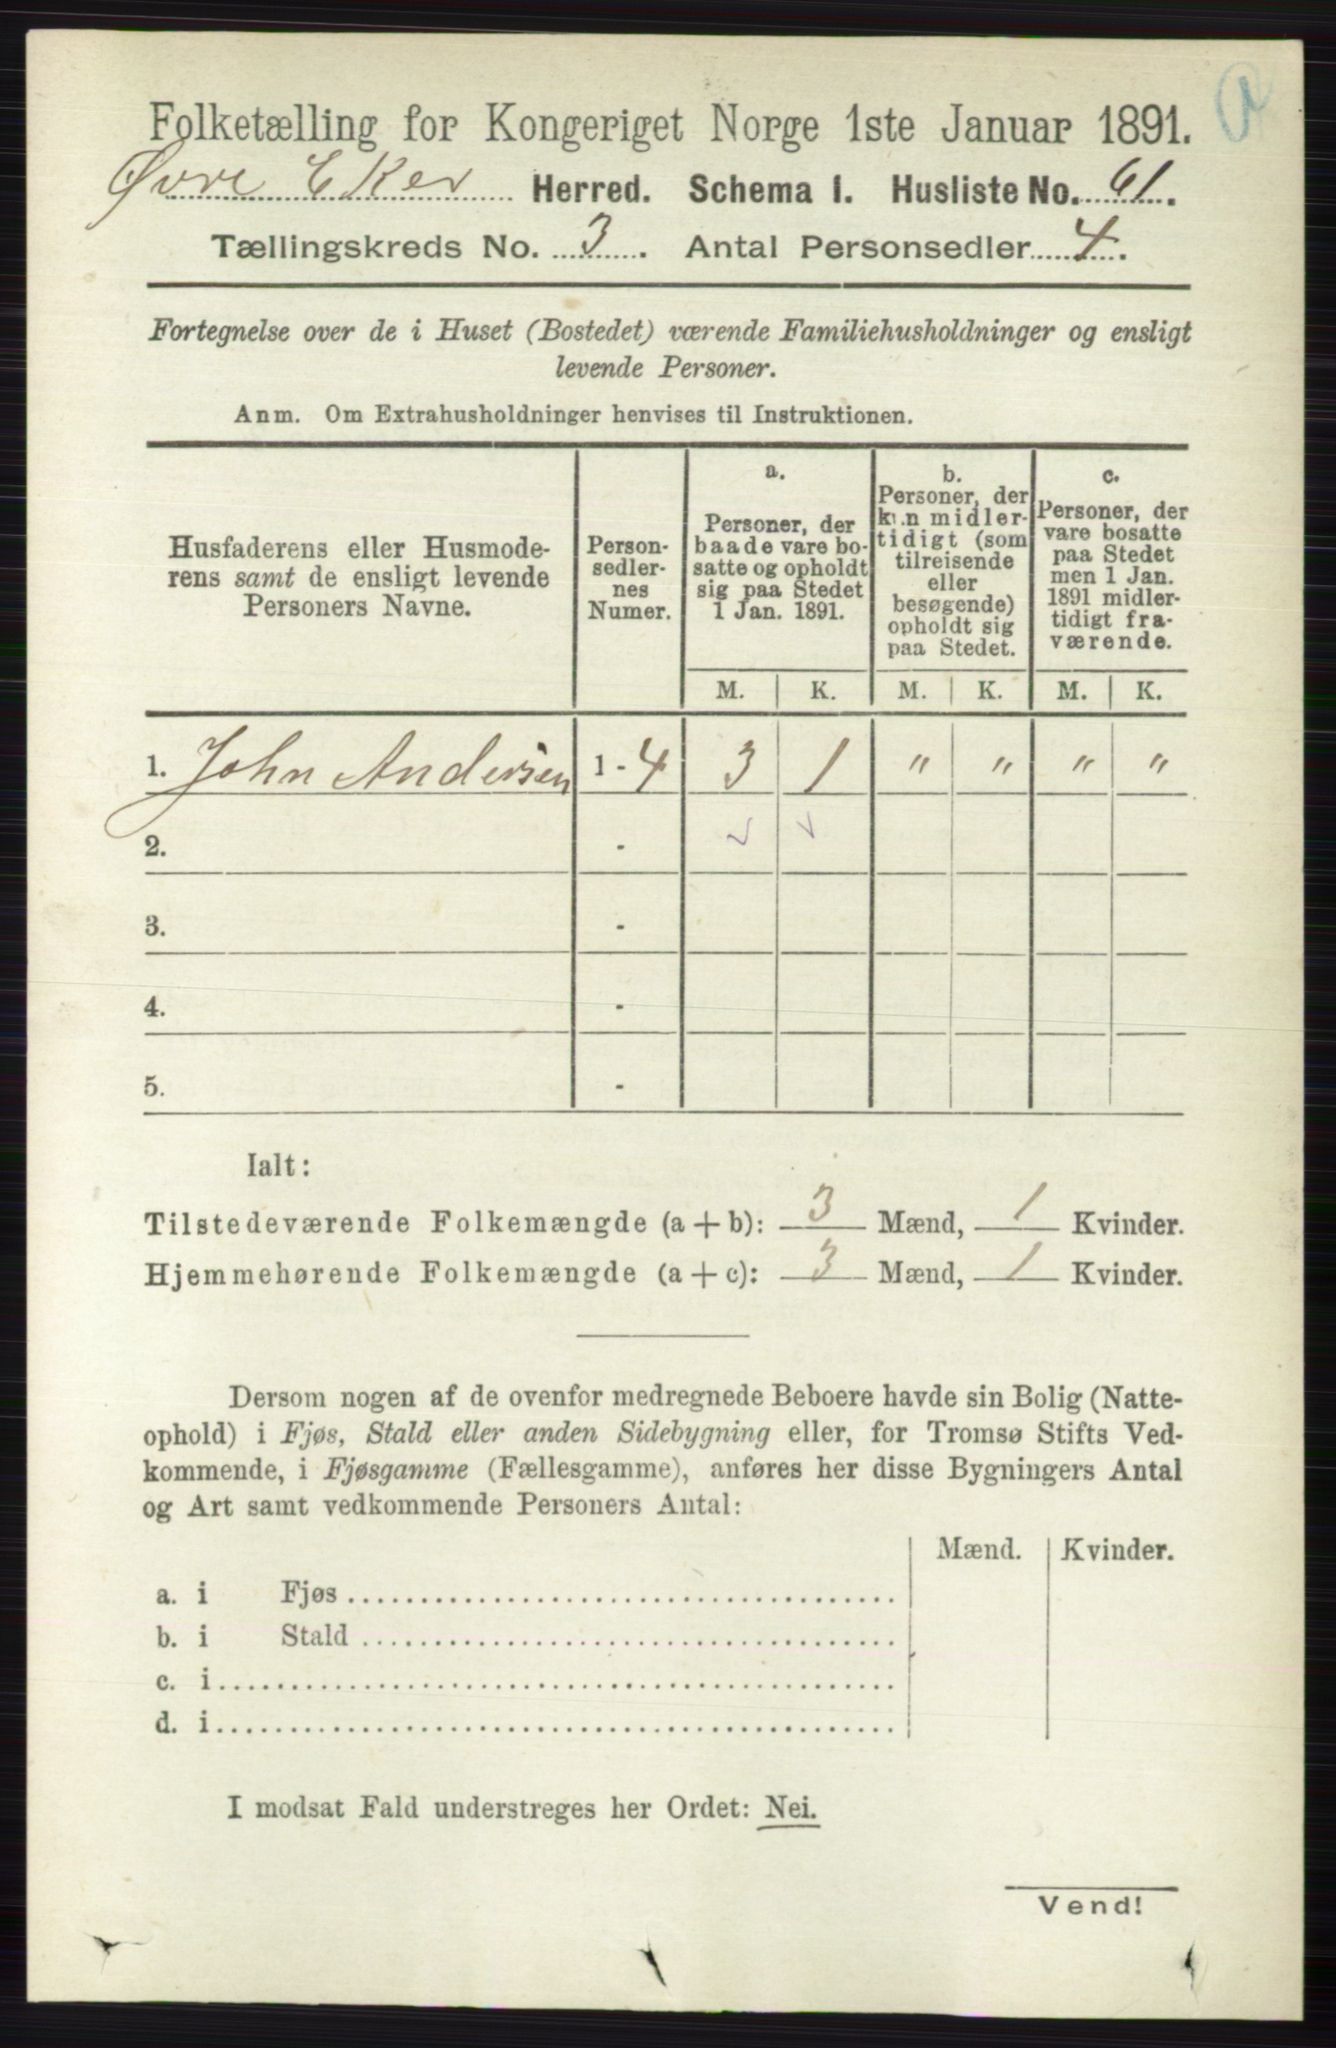 Folketælling for Kongeriget Norge 1ste Januar 1891.
Øvre Eker Herred. Schema 1. Husliste No. 61.
Tællingskreds No. 3. Antal Personsedler 4.
Fortegnelse over de i Huset (Bostedet) værende Familiehusholdninger og ensligt
levende Personer.
Anm. Om Extrahusholdninger henvises til Instruktionen.
Husfaderens eller Husmode-
rens samt de ensligt levende
Personers Navne.
Person-
sedler-
nes
Numer.
a.
Personer, der
baade vare bo-
satte og opholdt
sig paa Stedet
1 Jan. 1891.
b.
Personer, der
kun midler-
tidigt (som
tilreisende
eller
besøgende)
opholdt sig
paa Stedet.
c.
Personer, der
vare bosatte
paa Stedet
men 1 Jan.
1891 midler-
tidigt fra-
værende.
M. K. M. K. M. K.
1. John Andersen 1 - 4 3 1 " " " "
2. -
3. -
4. -
5. -
Ialt:
Tilstedeværende Folkemængde (a + b): 3 Mænd, 1 Kvinder.
Hjemmehørende Folkemængde (a + c): 3 Mænd, 1 Kvinder.
Dersom nogen af de ovenfor medregnede Beboere havde sin Bolig (Natte-
ophold) i Fjøs, Stald eller anden Sidebygning eller, for Tromsø Stifts Ved-
kommende, i Fjøsgamme (Fællesgamme), anføres her disse Bygningers Antal
og Art samt vedkommende Personers Antal:
Mænd. Kvinder.
a. i Fjøs
b. i Stald
c. i
d. i
I modsat Fald understreges her Ordet: Nei.
Vend!